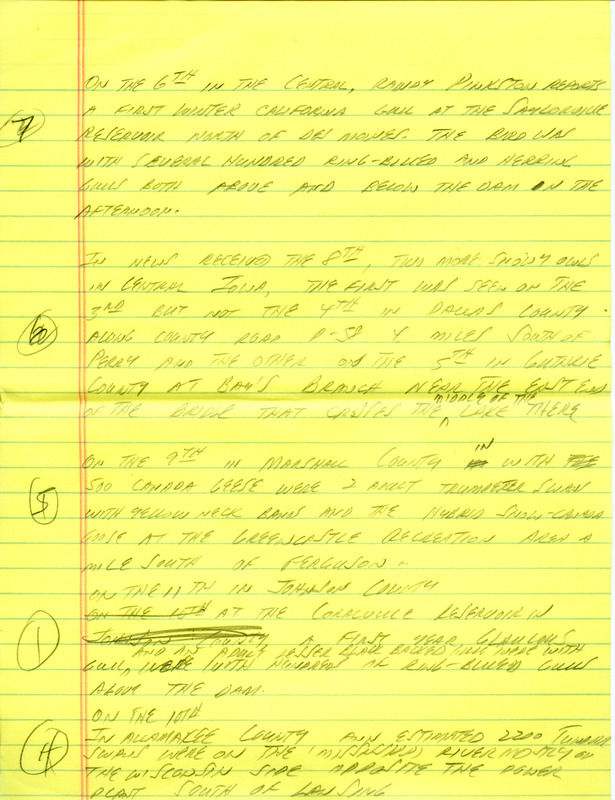 ON THE 6TH IN THE CENTRAL, RANDY PINKSTON REPORTS
7 A FIRST WINTER CALIFORNIA GULL AT THE SAYLORVILLE
RESERVOIR NORTH OF DES MOINES. THE BIRD WAS
WITH SEVERAL HUNDRED RING-BILLED AND HERRING
GULLS BOTH ABOVE AND BELOW THE DAM IN THE
AFTERNOON.
IN NEWS RECEIVED THE 8TH, TWO MORE SNOWY OWLS
IN CENTRAL IOWA, THE FIRST WAS SEEN ON THE
3RD BUT NOT THE 4TH IN DALLAS COUNTY
6 ALONG COUNTY ROAD P-58 4 MILES SOUTH OF
PERRY AND THE OTHER ON THE 5TH IN GUTHRIE
COUNTY AT BAY'S BRANCH NEAR THE EAST END
OF THE BRIDGE THAT CROSSES THE MIDDLE OF THE LAKE THERE
ON THE 9TH IN MARSHALL COUNTY IN WITH
5 500 CANADA GEESE WERE 2 ADULT TRUMPETER SWANS
WITH YELLOW NECK BANDS AND THE HYBRID SNOW-CANADA
GOOSE AT THE GREENCASTLE RECREATION AREA A
MILE SOUTH OF FERGUSON.
ON THE 11TH IN JOHNSON COUNTY
ON THE 10TH AT THE CORALVILLE RESERVOIR IN
1 JOHNSON COUNTY A FIRST YEAR GLAUCOUS
AND AN ADULT LESSER BLACK BACKED GULL WERE WITH
GULL, WERE WITH HUNDREDS OF RING-BILLED GULLS
ABOVE THE DAM.
ON THE 10TH
4 IN ALLAMAKEE COUNTY AN ESTIMATED 2200 TUNDRA
SWANS WERE ON THE MISSISSIPPI RIVER MOSTLY ON
THE WISCONSIN SIDE OPPOSITE THE POWER
PLANT SOUTH OF LANSING